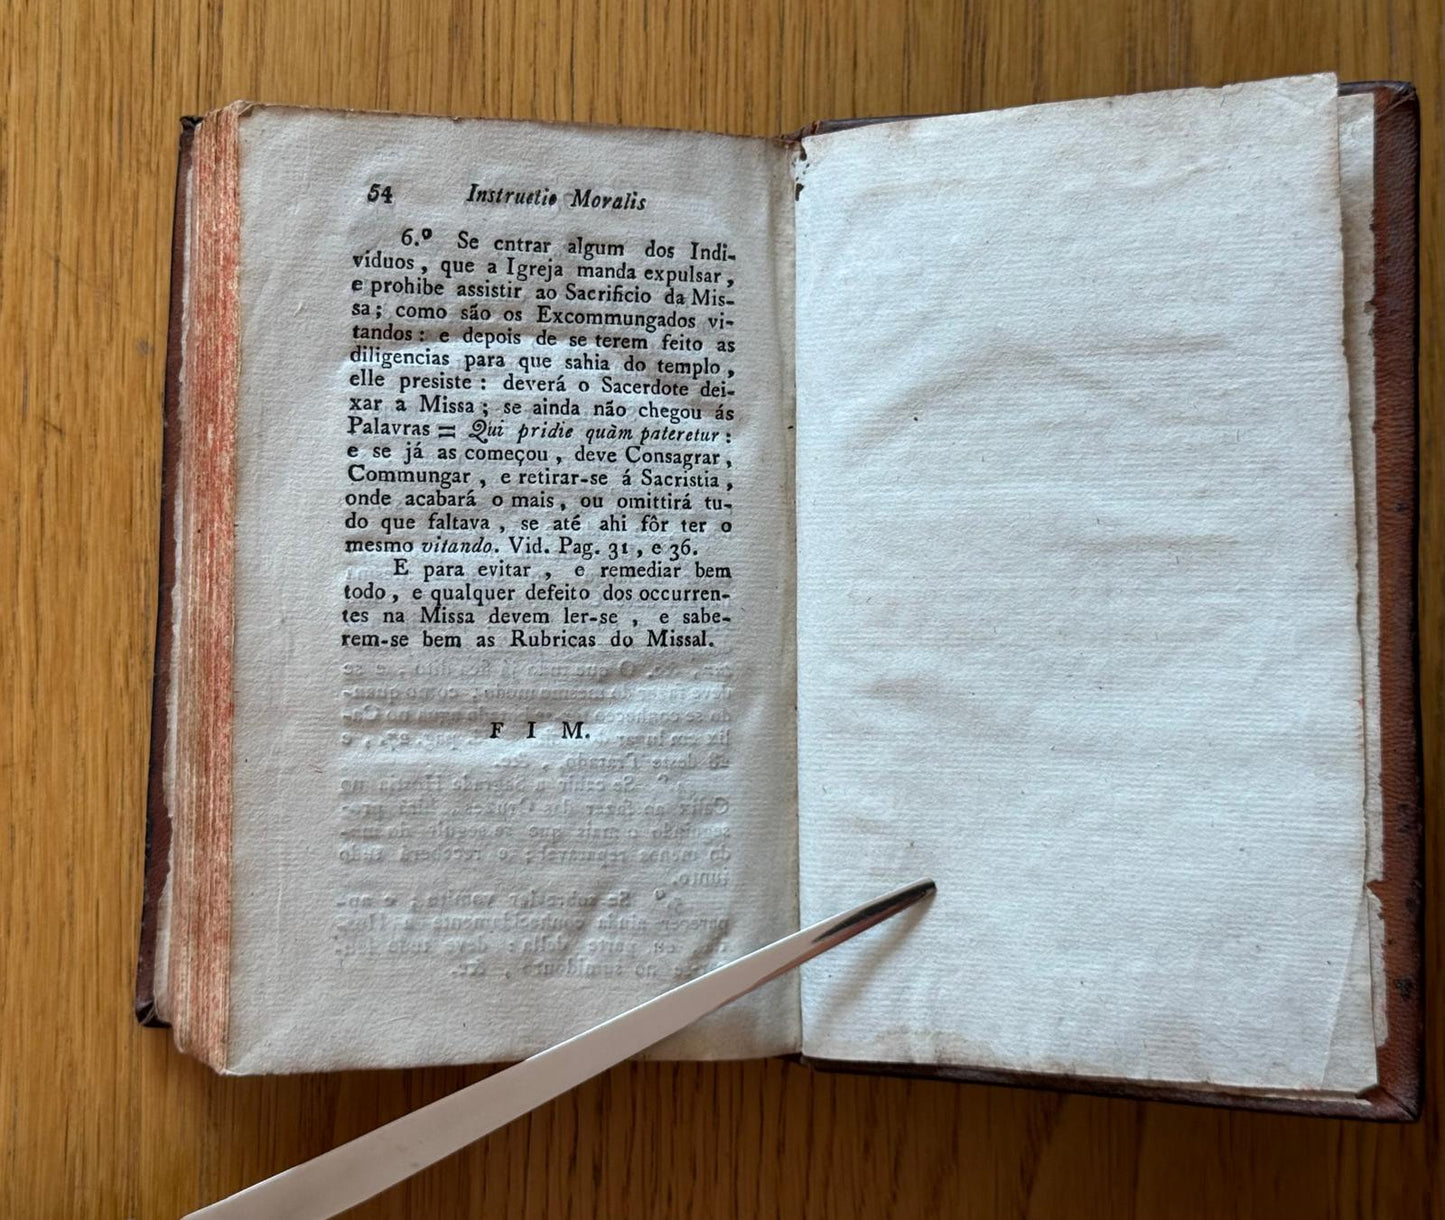 54 Instructio Moralis
6.º Se entrar algum dos Indi-
viduos, que a Igreja manda expulsar,
e prohibe assistir ao Sacrificio da Mis-
sa; como são os Excommungados vi-
tandos: e depois de se terem feito as
diligencias para que sahia do templo,
elle presiste: deverá o Sacerdote dei-
xar a Missa; se ainda não chegou ás
Palavras = Qui pridie quàm pateretur:
e se já as começou, deve Consagrar,
Commungar, e retirar-se á Sacristia,
onde acabará o mais, ou omittirá tu-
do que faltava, se até ahi fôr ter o
mesmo vitando. Vid. Pag. 31, e 36.
E para evitar, e remediar bem
todo, e qualquer defeito dos occurren-
tes na Missa devem ler-se, e sabe-
rem-se bem as Rubricas do Missal.
FIM.